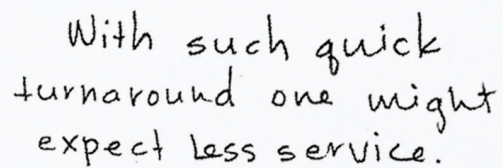 With such quick
turnaround one might
expect less service.